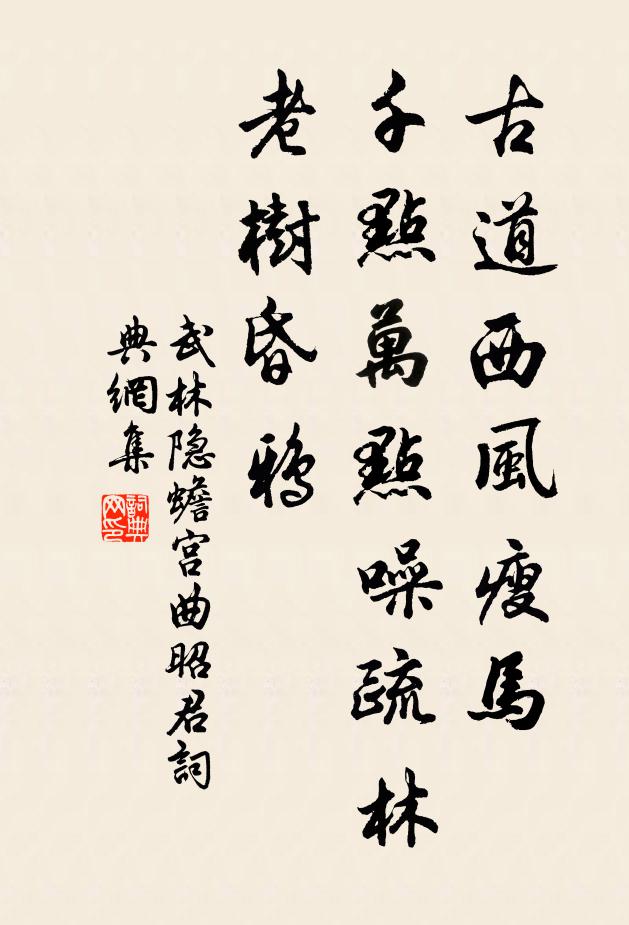 古道西風瘦馬
千點萬點噪疏林
老樹昏鴉
武林隐蟾宫曲昭君詞
典網集
詞典網印